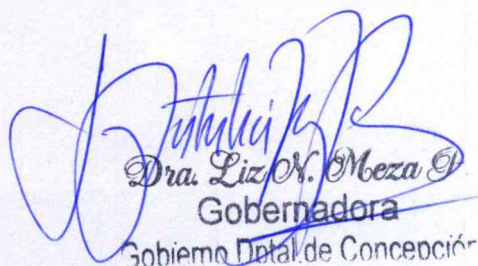 Dra. Liz N. Meza G
Gobernadora
Gobierno Dptal.de Concepción